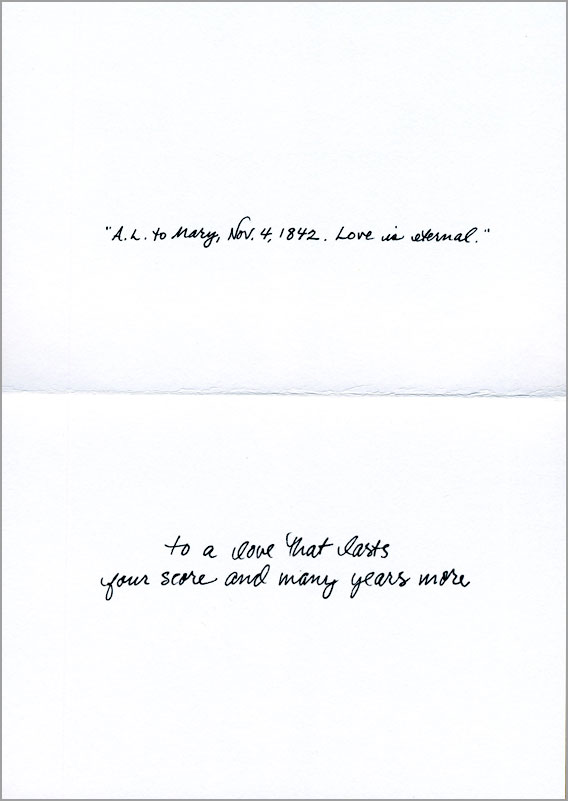 "A.L. to Mary, Nov. 4, 1842. Love is eternal."
to a love that lasts
four score and many years more